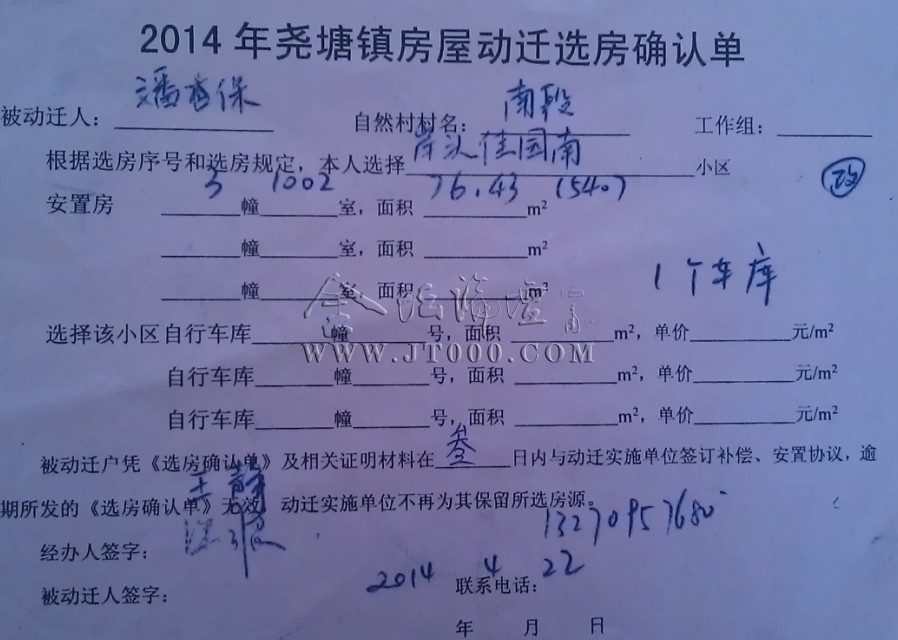 2014年尧塘镇房屋动迁选房确认单
被动迁人： 潘保 自然村村名：南段 工作组：
根据选房序号和选房规定，本人选择岸头佳园南小区
安置房 3幢1002室，面积76.43 (540)m²
改
幢 室，面积 m²
幢 室，面积 m²
1个车库
选择该小区自行车库 幢 号，面积 m²，单价 元/m²
WWW.JT000.COM
自行车库 幢 号，面积 m²，单价 元/m²
自行车库 幢 号，面积 m²，单价 元/m²
被动迁户凭《选房确认单》及相关证明材料在叁日内与动迁实施单位签订补偿、安置协议，逾
期所发的《选房确认单》无效，动迁实施单位不再为其保留所选房源。
经办人签字：
被动迁人签字： 联系电话：13270957680
2014年4月22日